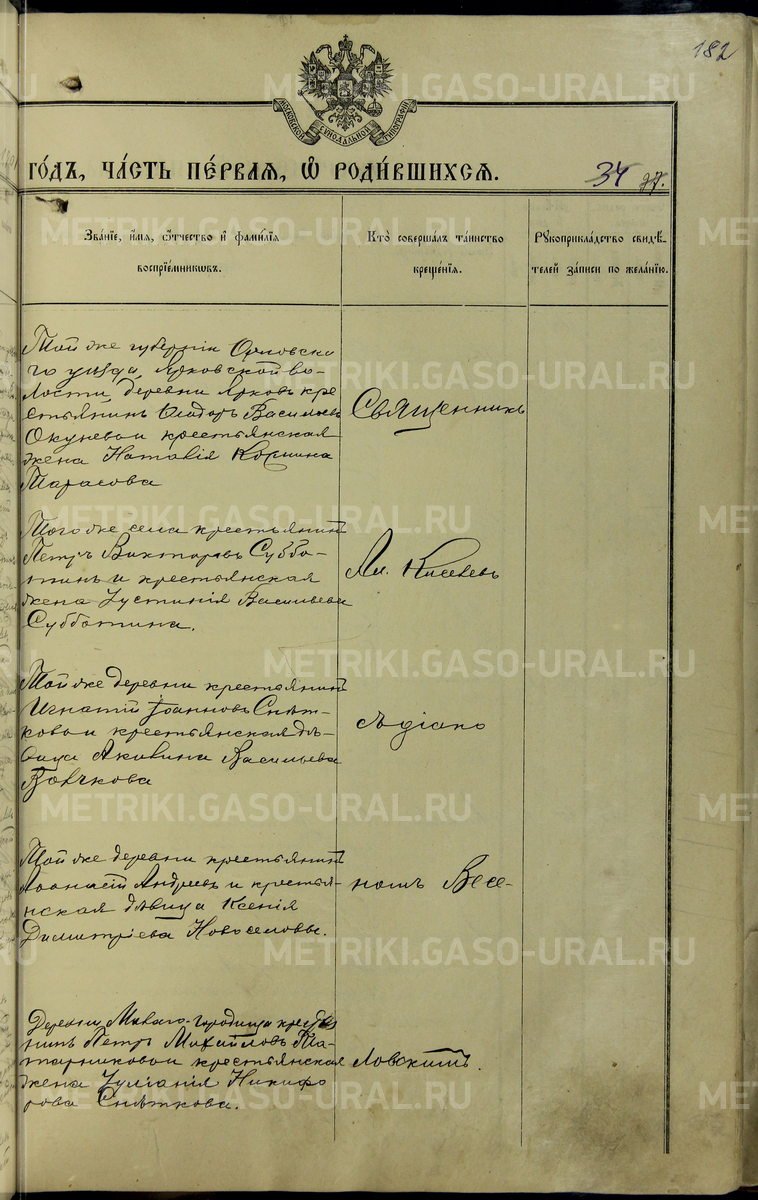 182
МОСКОВСКОЙ СѴНОДАЛЬНОЙ ТИПОГРАФІИ
ГО́ДЪ, ЧА́СТЬ ПЕ́РВАЯ, Ѽ РОДИ́ВШИХСЯ. 34
Зва́нїе, и́мя, ѻ҆́тчество и҆ фами́лїя воспрїе́мниковъ.
Кто̀ соверша́лъ та́инство креще́нїя.
Рꙋкоприкла́дство свидѣ́телей за́писи по жела́нїю.
Той же губерніи Орловска
го уѣзда, Ярковской во-
лости, деревни Ярковъ кре
стьянинъ Ѳеодоръ Васильевъ
Окуневъ и крестьянская
жена Наталія
Тарасова
Священникъ
Того же села крестьянинъ
Петръ Викторовъ Суббо-
тинъ и крестьянская
жена Іустинія Васильева
Субботина.
Ал. Киселевъ
Той же деревни крестьянинъ
Игнатій Іоанновъ Снѣт-
ковъ и крестьянская дѣ-
вица Акилина Васильева
Волчкова
съ діако
Той же деревни крестьянинъ
Аѳанасій Андреевъ и крестья-
нская дѣвица Ксенія
Димитріева Новоселовы.
номъ Весе-
Деревни городища крестья
нинъ Петръ Михайловъ Та-
тарниковъ и крестьянская
жена Іуліанія Никифо
рова Снѣткова.
ловскимъ.
METRIKI.GASO-URAL.RU